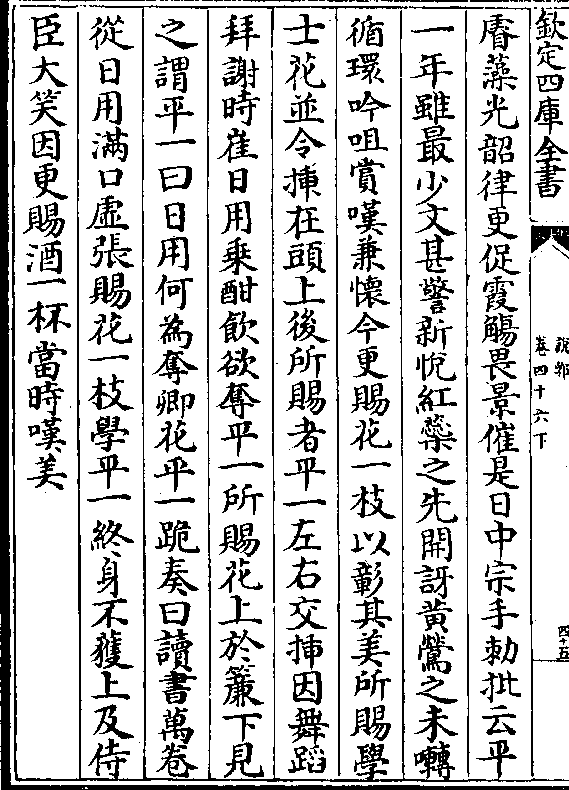 欽定四庫全書
說郛
卷四十六下
四十五
睿藻光韶律更促霞觴畏景催是日中宗手勑批云平
一年雖最少文甚警新悅紅蘂之先開訝黃鶯之未囀
循環吟咀賞嘆兼懷今更賜花一枝以彰其美所賜學
士花並令揷在頭上後所賜者平一左右交揷因舞蹈
拜謝時崔日用乗酣飲欲奪平一所賜花上於簾下見
之謂平一曰日用何為奪卿花平一跪奏曰讀書萬卷
從日用滿口虛張賜花一枝學平一終身不獲上及侍
臣大笑因更賜酒一杯當時嘆美